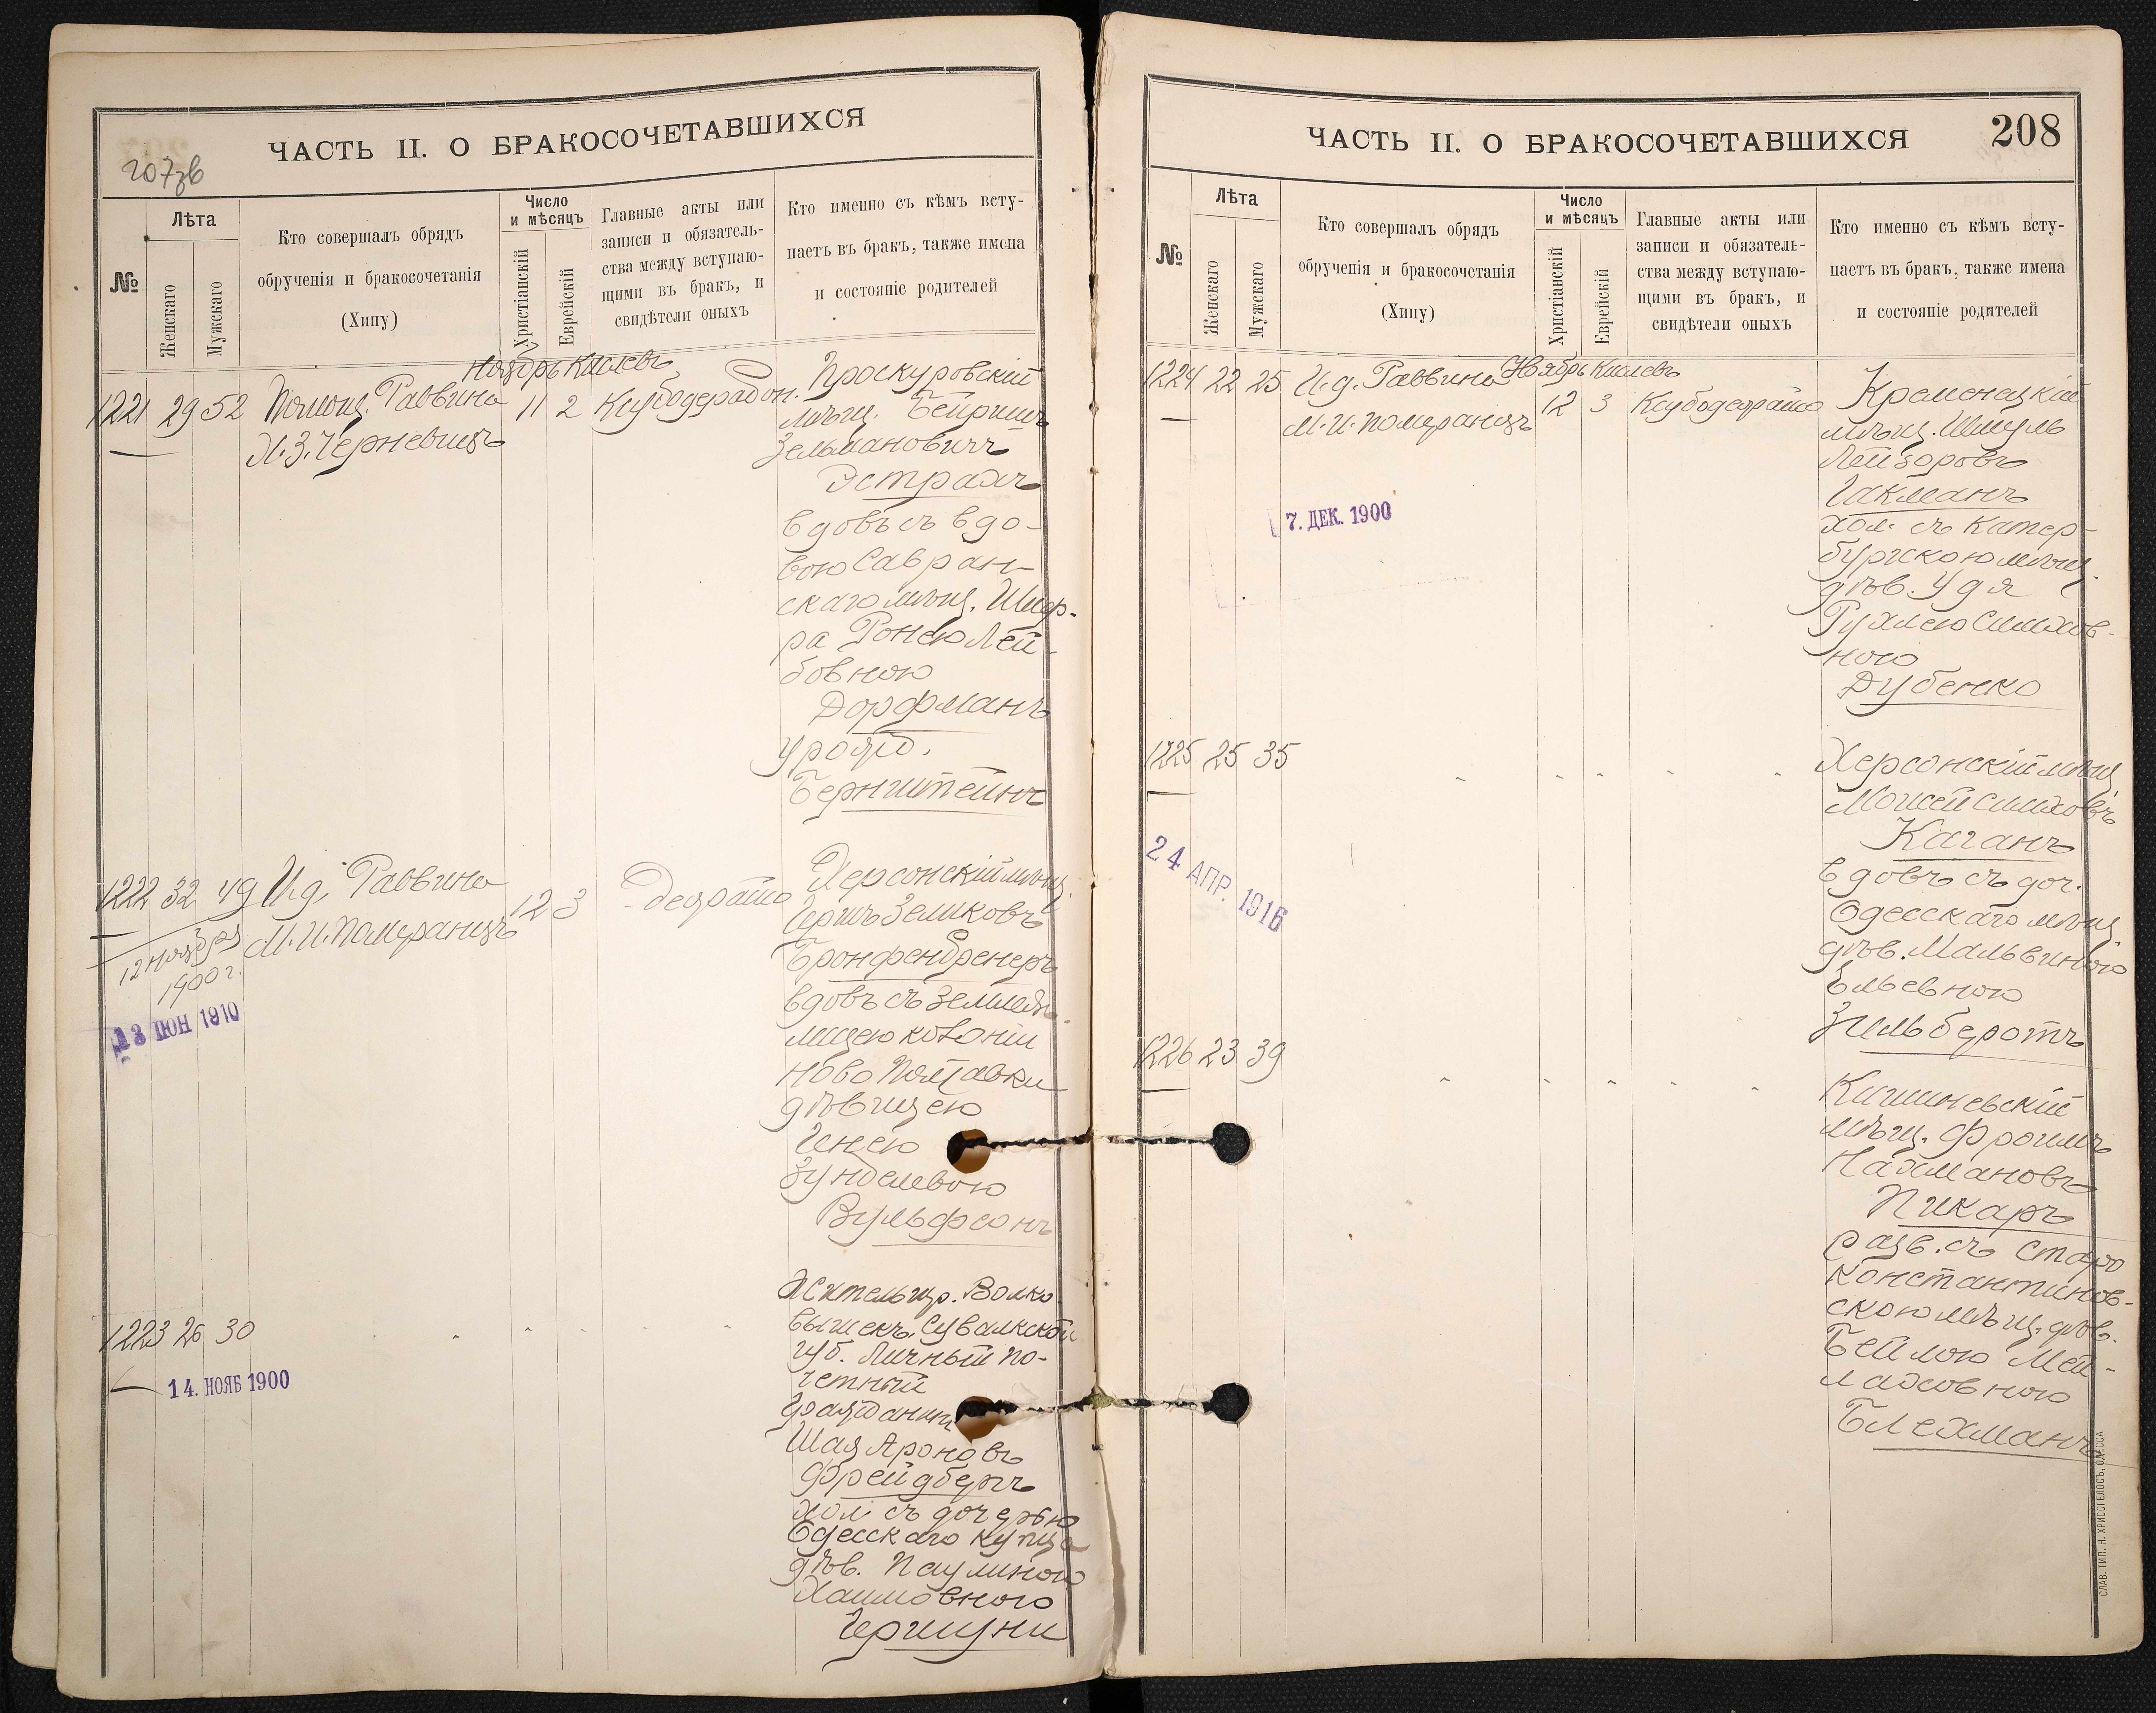 ЧАСТЬ II. О БРАКОСОЧЕТАВШИХСЯ
207зв
№
Лѣта
Женскаго
Мужскаго
Кто совершалъ обрядъ
обрученія и бракосочетанія
(Хипу)
Число
и мѣсяцъ
Христіанскій
Еврейскій
Главные акты или
записи и обязатель-
ства между вступаю-
щими въ бракъ, и
свидѣтели оныхъ
Кто именно съ кѣмъ всту-
паетъ въ бракъ, также имена
и состояніе родителей
Ноябрь Кислевъ
1221 29 52 Помощ. Раввина 11 2
Х.З. Черневицъ
Проскуровскій
мѣщ. Бейришъ
Зельмановичъ
Эстрахъ
вдовъ съ вдо-
вою Савран-
скаго мѣщ. Шиф-
ра Ронею Лей-
бовною
Дорфманъ
урожд.
Бернштейнъ
1222 32 49 И.д. Раввина 12 3
М.И. Померанцъ
12 ноября
1900 г.
13 ІЮН 1910
Херсонскій мѣщ.
Гершъ Зеликовъ
Бронфенбренеръ
вдовъ съ землед.
лицею колоніи
Ново Полтавки
дѣвицею
Генею
Зунделевою
Вульфсонъ
1223 26 30
14. НОЯБ 1900
Житель гор. Волко-
вышекъ, Сувалкской
губ. Личный по-
четный
гражданинъ
Шая Ароновъ
Фрейдбергъ
хол. съ дочерью
Одесскаго купца
дѣв. Паулиною
Хаимовною
Гершуни
ЧАСТЬ II. О БРАКОСОЧЕТАВШИХСЯ
208
№
Лѣта
Женскаго
Мужскаго
Кто совершалъ обрядъ
обрученія и бракосочетанія
(Хипу)
Число
и мѣсяцъ
Христіанскій
Еврейскій
Главные акты или
записи и обязатель-
ства между вступаю-
щими въ бракъ, и
свидѣтели оныхъ
Кто именно съ кѣмъ всту-
паетъ въ бракъ, также имена
и состояніе родителей
Ноябрь Кислевъ
1224 22 25 И.д. Раввина 12 3
М.И. Померанцъ
7. ДЕК. 1900
Кременецкій
мѣщ. Шмуль
Лейзоровъ
Гакманъ
хол. съ Катер-
бургскою мѣщ.
дѣв. Удя
Рухлею Симхов-
ною
Дубенко
1225 25 35
24 АПР. 1916
Херсонскій мѣщ.
Мошей Симховъ
Каганъ
вдовъ съ доч.
Одесскаго мѣщ.
дѣв. Мальвиною
Ельевною
Зильберотъ
1226 23 39
Кишиневскій
мѣщ. Фроимъ
Нахмановъ
Пикаръ
разв. съ Старо
Константинов-
скою мѣщ. дѣв.
Бейлою Мей-
лаховною
Блехманъ
СЛАВ. ТИП. Н. ХРИСОГЕЛОСЪ, ОДЕССА